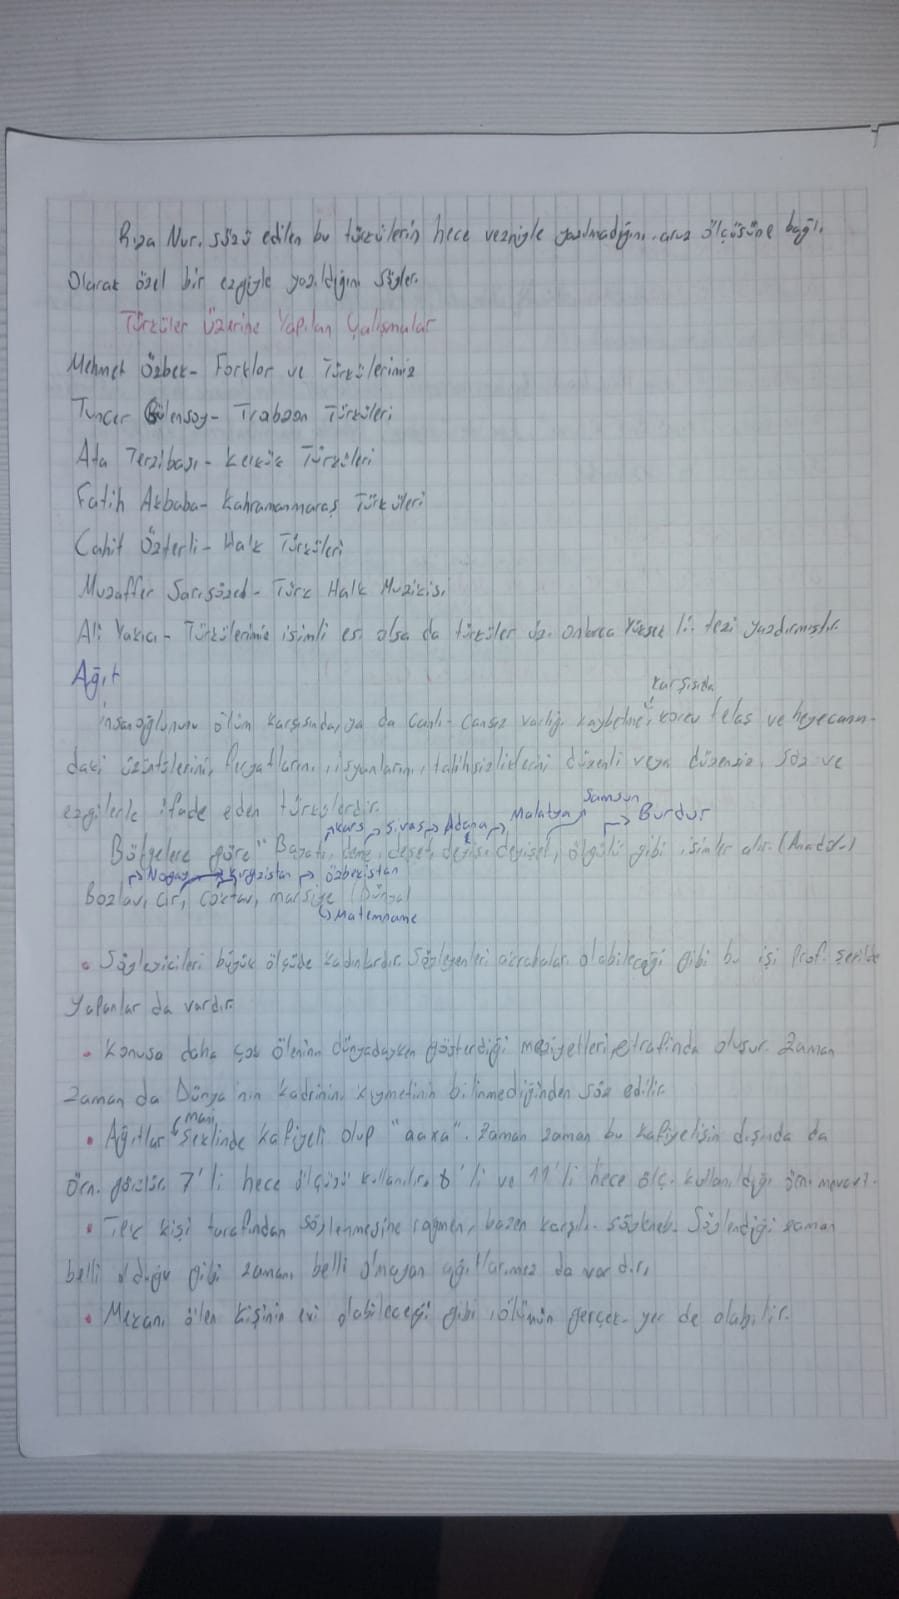 Rıza Nur, sözü edilen bu türkülerin hece vezniyle yazılmadığını, aruz ölçüsüne bağlı
Olarak özel bir ezgiyle yazıldığını söyler.
Türküler Üzerine Yapılan Çalışmalar
Mehmet Özbek- Forklor ve Türkülerimiz
Tuncer Gülensoy- Trabzon Türküleri
Ata Terzibaşı- Kerkük Türküleri
Fatih Akbaba- Kahramanmaraş Türküleri
Cahit Özterli- Halk Türküleri
Muzaffer Sarısözen- Türk Halk Muzikisi
Ali Yakıcı- Türkülerimiz isimli es. olsa da türküler üz. onlarca Yüksek li. tezi yazdırmıştır.
Ağıt
karşısıda
İnsanoğlunun ölüm karşısında, ya da canlı-cansız varlığı kaybetme, korku telaş ve heyecanın-
daki üzüntülerini, feryatlarını, isyanlarını, talihsizliklerini düzenli veya düzensiz, söz ve
ezgilerle ifade eden türkülerdir.
Kars Sivas Adana Malatya Samsun Burdur
Bölgelere göre "Bayatı, deme, deşet, deyiş, deyişet, ölgülü gibi isimler alır. (Anadolu)
Nogay Kırgızistan özbekistan
Bozlav, cır, çoktav, marsiye (Dünya)
Matemname
• Söyleyicileri büyük ölçüde kadınlardır. Söyleyenleri akrabaları olabileceği gibi bu işi Prof. şerilde
Yapanlar da vardır.
• Konusu daha çok ölenin dünyadayken gösterdiği meziyetleri etrafında oluşur. Zaman
zaman da Dünya'nın kadrinin kıymetinin bilinmediğinden söz edilir.
mani
• Ağıtlar şeklinde kafiyeli olup "aaxa". Zaman zaman bu kafiyelişin dışında da
Örn. görülür. 7'li hece ölçüsü kullanılır. 8'li ve 11'li hece ölç. kullanıldığı örn. mevcut.
• Tek kişi tarafından söylenmesine rağmen, bazen karşılı. söylenebi. Söylendiği zaman
belli olduğu gibi zamanı belli olmayan ağıtlarımız da vardır.
• Mekanı ölen kişinin evi olabileceği gibi, ölümün gerçek. yer de olabilir.